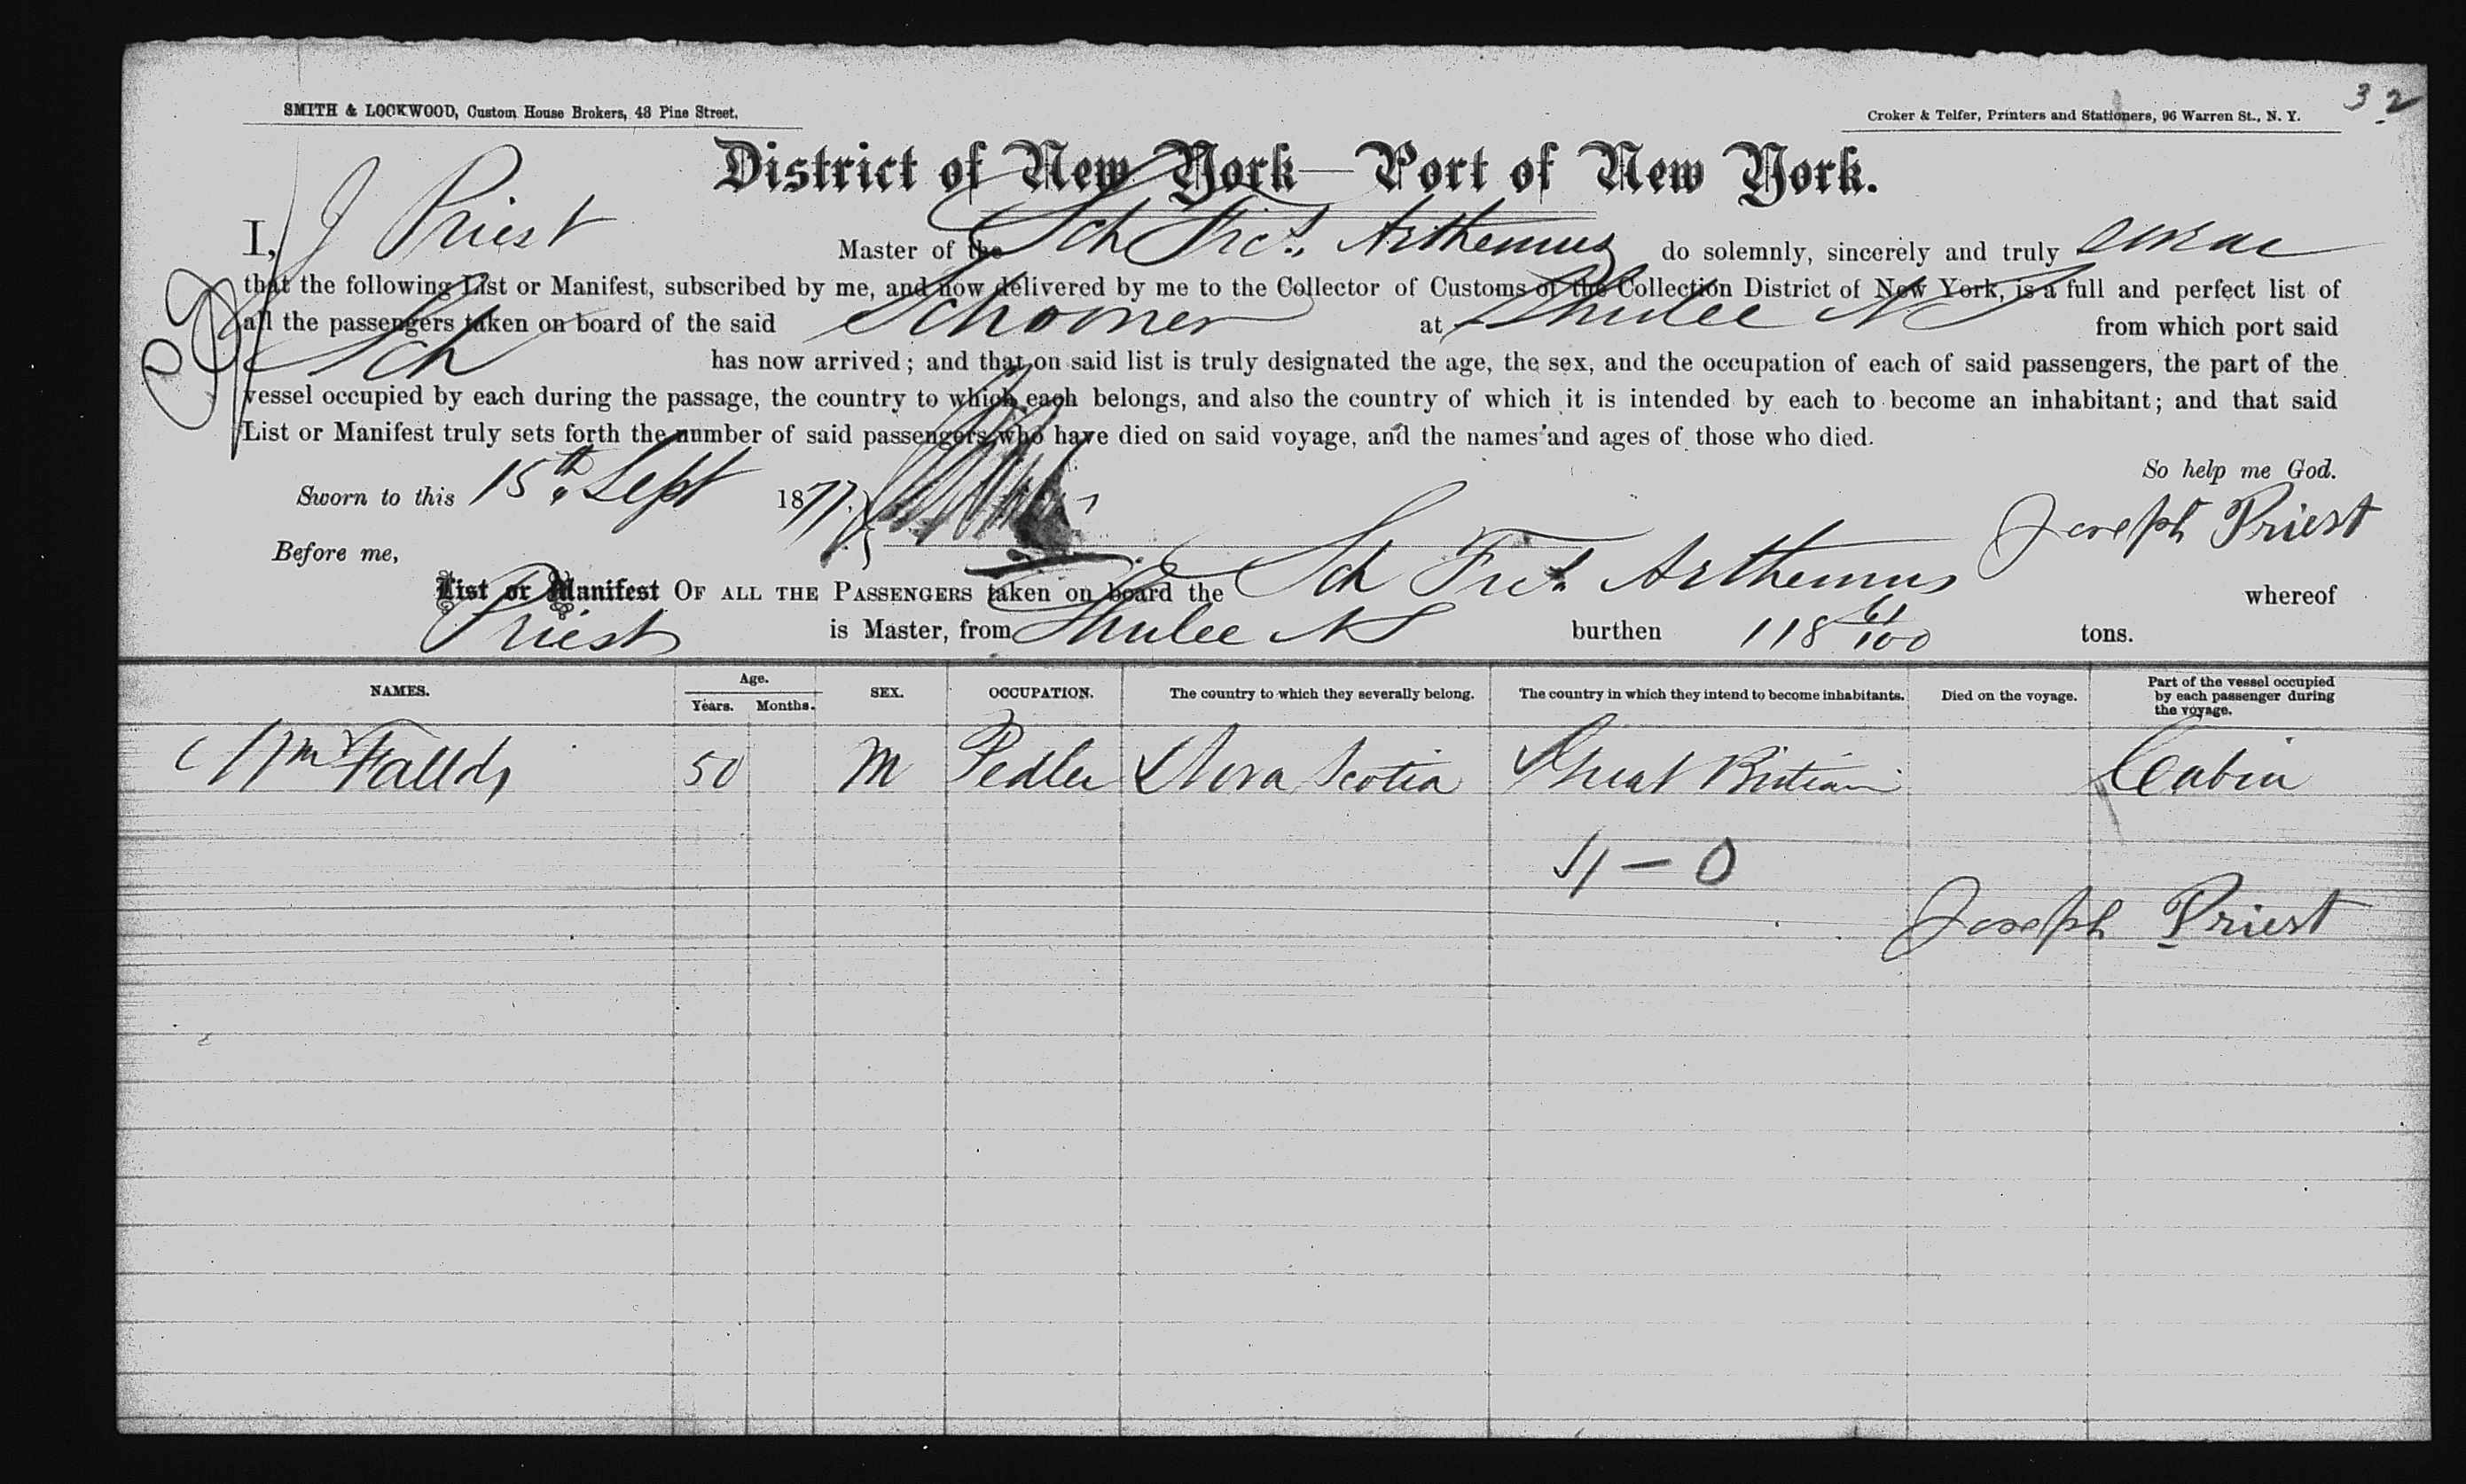 32
SMITH & LOCKWOOD, Custom House Brokers, 43 Pine Street.
Croker & Telfer, Printers and Stationers, 96 Warren St., N. Y.
District of New York—Port of New York.
I, J Priest Master of the Sch Frc. Arthemus do solemnly, sincerely and truly swear
that the following List or Manifest, subscribed by me, and now delivered by me to the Collector of Customs of the Collection District of New York, is a full and perfect list of
all the passengers taken on board of the said Schooner at Shulee NS from which port said
Sch has now arrived; and that on said list is truly designated the age, the sex, and the occupation of each of said passengers, the part of the
vessel occupied by each during the passage, the country to which each belongs, and also the country of which it is intended by each to become an inhabitant; and that said
List or Manifest truly sets forth the number of said passengers who have died on said voyage, and the names and ages of those who died.
So help me God.
Sworn to this 15th Sept 1877.
Joseph Priest
Before me,
List or Manifest OF ALL THE PASSENGERS taken on board the Sch Frc. Arthemus whereof
Priest is Master, from Shulee NS burthen 118 61/100 tons.
NAMES. Age. Years. Months. SEX. OCCUPATION. The country to which they severally belong. The country in which they intend to become inhabitants. Died on the voyage. Part of the vessel occupied by each passenger during the voyage.
Wm Fallds 50 M Pedler Nova Scotia Great Britian Cabin
Joseph Priest